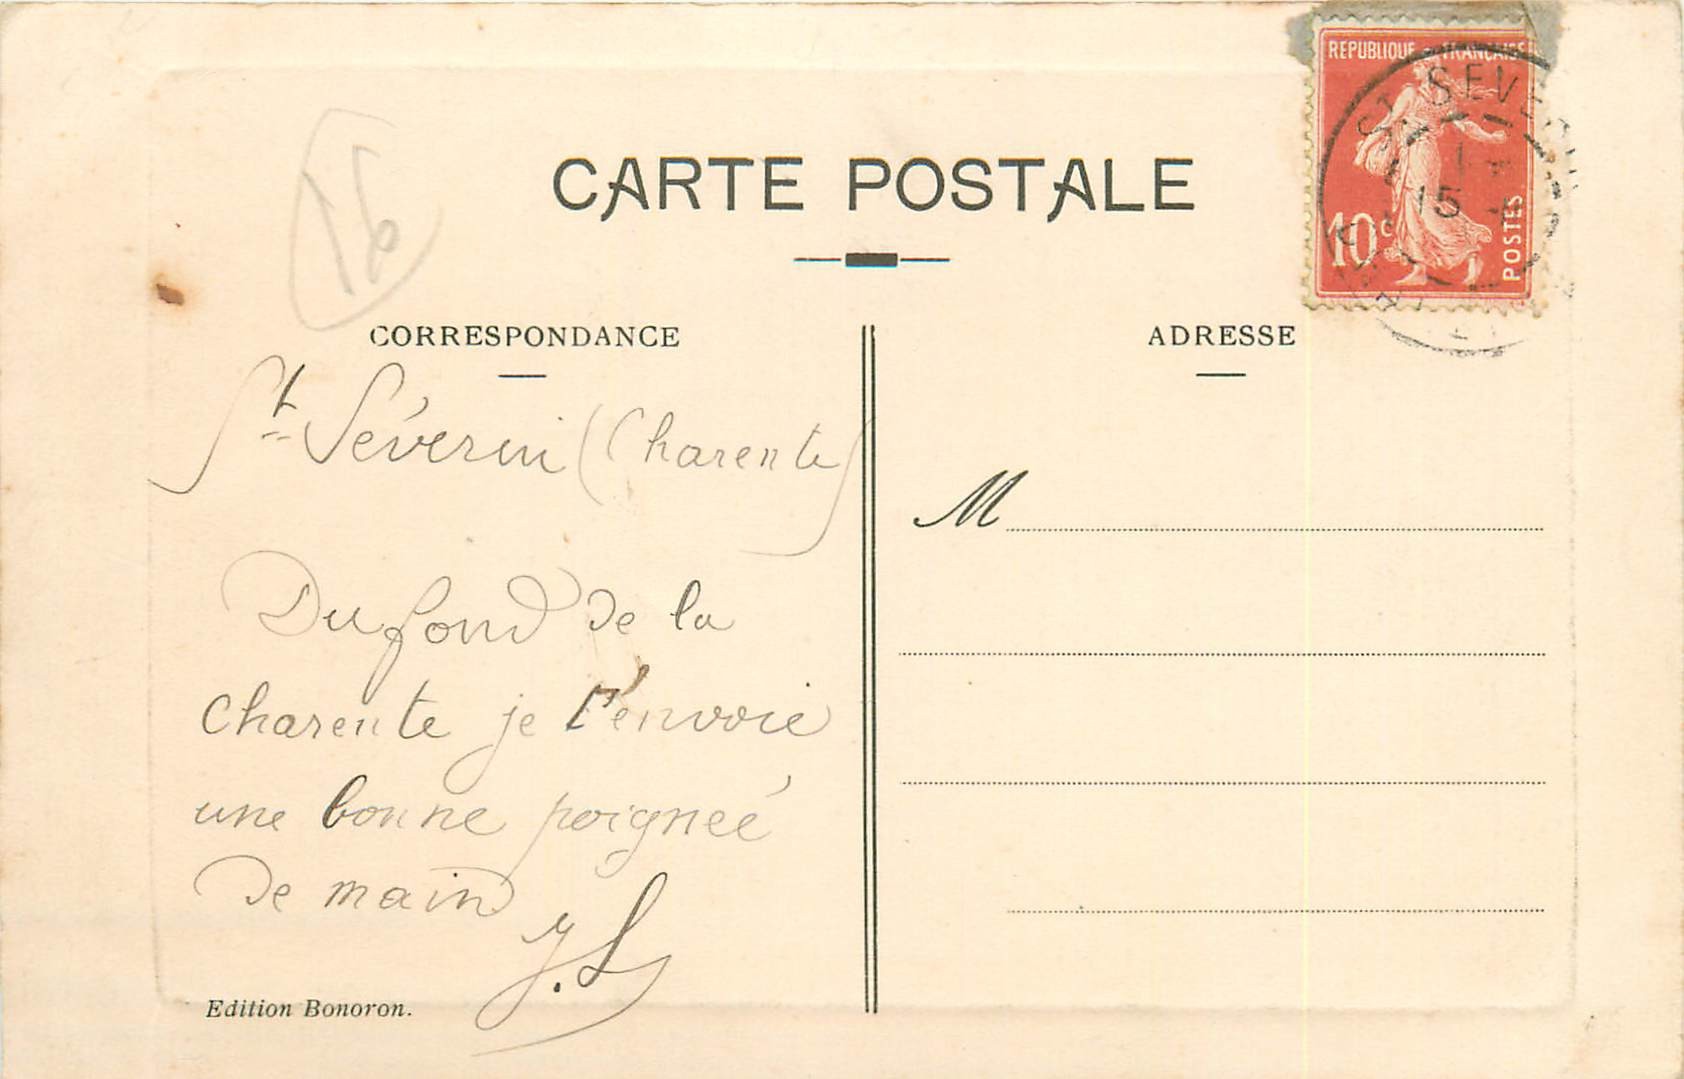 REPUBLIQUE FRANÇAISE
ST SEVER
15
10c
POSTES
16
CARTE POSTALE
CORRESPONDANCE
St Séverin (Charente)
Du fond de la
Charente je t'envoie
une bonne poignée
de main
J.L
Edition Bonoron.
ADRESSE
M